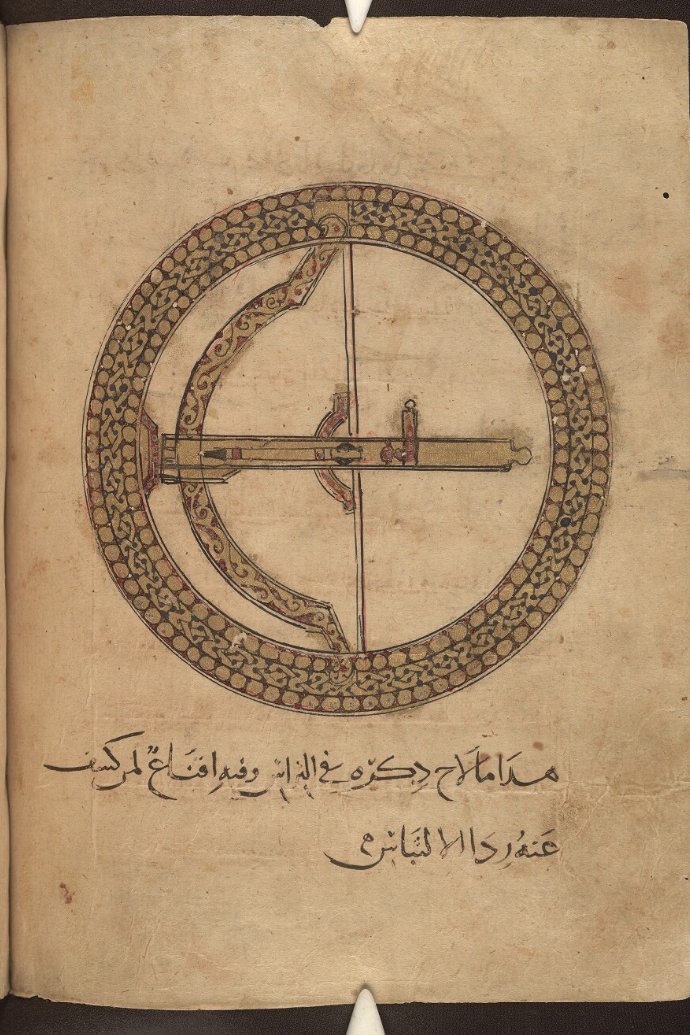 هذا ما لاح ذكره في التراس وفيه اقناع لمن كشف
عنه ردا الالتباس